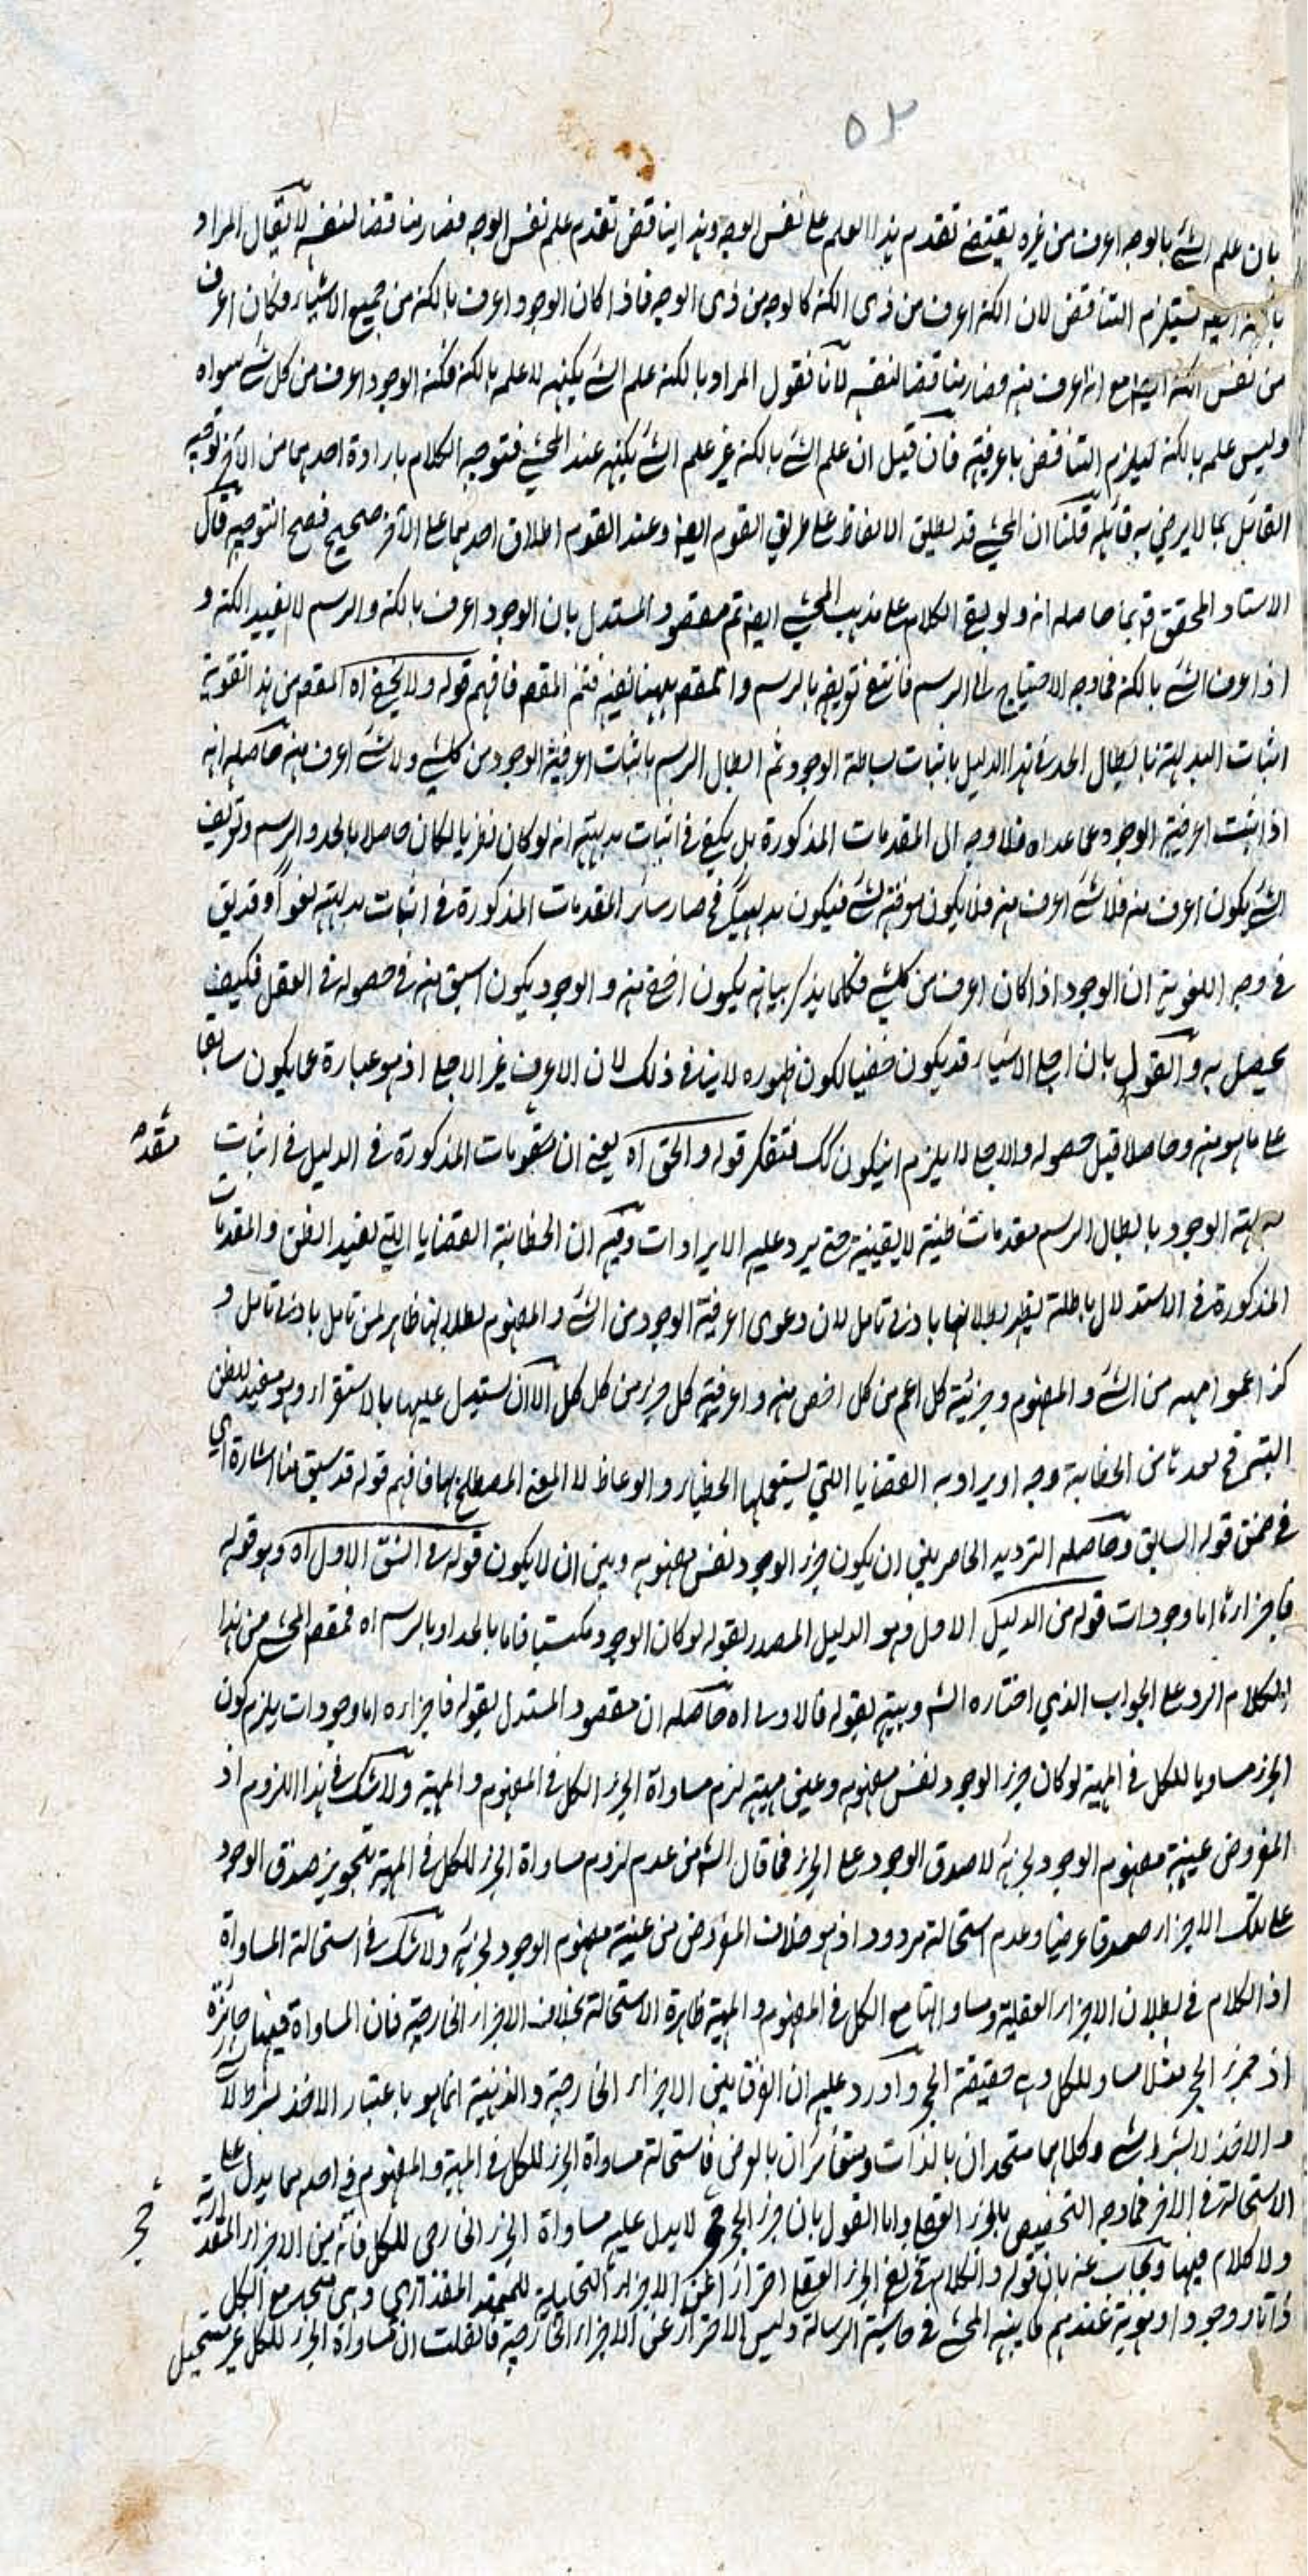 ٥٢
بان علم الشئ بالوجه اعرف من غيره يقتضے تقدم هذا العلم علے نفس الوجه وهذا يناقض تقدم علم نفس الوجه فصار مناقضا لنفسه لا يقال المراد
يستلزم التناقض لان الكنه اعرف من ذی الكنه كالوجه من ذی الوجه فاذا كان الوجود اعرف بالكنه من جميع الاشياء فكان اعرف
من نفس الكنه ايضا مع انه اعرف منه فصار مناقضا لنفسه لانا نقول المراد بالكنه علم الشئ بكنهه لا علمه بالكنه فكنه الوجود اعرف من كل شئ سواه
وليس علمه بالكنه ليلزم التناقض باعرفيته فان قيل ان علم الشئ بالكنه غير علم الشئ بكنهه عند المحشے فتوجيه الكلام بارادة احدهما من الآخر توجيه
القائل بما لا يرضی به قائله قلنا ان المحشے قد يطلق الالفاظ علے طريق القوم ايضا وعند القوم اطلاق احدهما علے الآخر صحيح فصح التوجيه قال
الاستاد المحقق قد بما حاصله انه ولو بقے الكلام علے مذهب المحشے ايضا تم مقصود المستدل بان الوجود اعرف بالكنه والرسم لا يفيد الكنه و
اذا عرف الشئ بالكنه فما وجه الاحتياج الی الرسم فانتفے تعريفه بالرسم والمقصود ههنا نفيه فتم المقصود فافهم قوله ولا يخفے اه المقصود من هذا تقوية
اثبات البديهة بابطال الحد فے هذا الدليل باثبات بساطة الوجود ثم ابطال الرسم باثبات اعرفية الوجود من كل شئ ولا شئ اعرف منه حاصله انه
اذا ثبت اعرفية الوجود عما عداه فلا وجه الی المقدمات المذكورة بل يكفے فی اثبات بديهته انه لو كان نظريا لكان حاصلا بالحد والرسم وتعريف
الشئ يكون اعرف منه فلا شئ اعرف منه فلا يكون معرفته لشئ فيكون بديهيا فح صار سائر المقدمات المذكورة فی اثبات بديهته لغوا وقد يق
فی وجه اللغوية ان الوجود اذا كان اعرف من كل شئ فكلما يذكر بيانه يكون اخفے منه والوجود يكون اسبق منه فی حصوله فی العقل فكيف
يحصل به والقول بان اجلے الاشياء قد يكون خفيا لكون ظهوره لا ينافی ذلك لان الاعرف غير الاجلے اذ هو عبارة عما يكون سابقا
علے ما هو منه وحاصلا قبل حصوله والاجلے لا يلزم ان يكون كك فتفكر قوله والحق اه يعنے ان المقدمات المذكورة فی الدليل فی اثبات
بديهته الوجود بابطال الرسم مقدمات ظنية لا يقينية حتے يرد عليه الايرادات وفيه ان الخطابة القضايا التی تفيد الظن والمقدمات
المذكورة فی الاستدلال باطلة يظهر بطلانها بادنے تامل لان دعوی اعرفية الوجود من الشئ والمفهوم بطلانها ظاهر لمن تامل بادنے تامل و
كذا عمواهمه من الشئ والمفهوم وجزئية كل اعم من كل اخص منه واعرفية كل جزء من كل كل الا ان يستدل عليها بالاستقراء وهو مفيد للظن
البتة فح لعدنا من الخطابة وجه او يراد به القضايا التی يستعملها الخطباء والوعاظ لا المعنے المصطلح لها فافهم قوله قد سبق منا اشارة ای
فی ضمن قوله السابق وحاصله الترديد الحاصر بين ان يكون جزء الوجود نفس مفهومه وبين ان لا يكون قوله فی الشق الاول اه وهو قوله
فاجزاءه اما وجودات قوله من الدليل الاول وهو الدليل المصدر بقوله لو كان الوجود مكتسبا فاما بالحد او بالرسم اه فمقصود المحشے من هذا
الكلام الرد علے الجواب الذی اختاره الشـ وبينه بقوله فالاولے اه حاصله ان مقصود المستدل بقوله فاجزاءه اما وجودات يلزم كون
الجزء مساويا للكل فی المهية لو كان جزء الوجود نفس مفهومه وعين مهيته لزم مساواة الجزء الكل فی المفهوم والمهية ولا شك فی هذا اللزوم اذ
المفروض عينية مفهوم الوجود لجزئه لا صدق الوجود علے الجزء فما قال الشـ من عدم لزوم مساواة الجزء للكل فی المهية بتجويز صدق الوجود
علے تلك الاجزاء صدقا عرضيا وعدم استحالته مردود اذ هو خلاف المفروض من عينية مفهوم الوجود لجزئه ولا شك فی استحالة المساواة
اذ الكلام فی بطلان الاجزاء العقلية ومساواتها مع الكل فی المفهوم والمهية ظاهرة الاستحالة بخلاف الاجزاء الخارجية فان المساواة فيها جائزة
اذ جزء الحجر مثلا مساو للكل وهے حقيقة الحجر واورد عليه ان الفرق بين الاجزاء الخارجية والذهنية انما هو باعتبار الاخذ بشرط لا
والاخذ لا بشرط شئ وكلاهما متحدان بالذات ومتغائران بالعرض فاستحالة مساواة الجزء للكل فی المهية والمفهوم فی احدهما يدل علے
الاستحالة فی الآخر فما وجه التخصيص بالجزء العقلے واما القول بان جزء الحجر لا يدل عليه مساواة الجزء الخارجی للكل فانه من الاجزاء المقدارية
ولا كلام فيها ويجاب عنه بان قوله والكلام فی نفے الجزء العقلے احتراز عن الاجزاء التحليلية للممتد المقداری وهی متحد مع الكل
ذاتا ووجودا وهوية عندهم كما بينه المحشے فی حاشية الرسالة وليس الاحتراز عن الاجزاء الخارجية فان قلت ان مساواة الجزء للكل غير مستحيل
مقدمـ
حجر